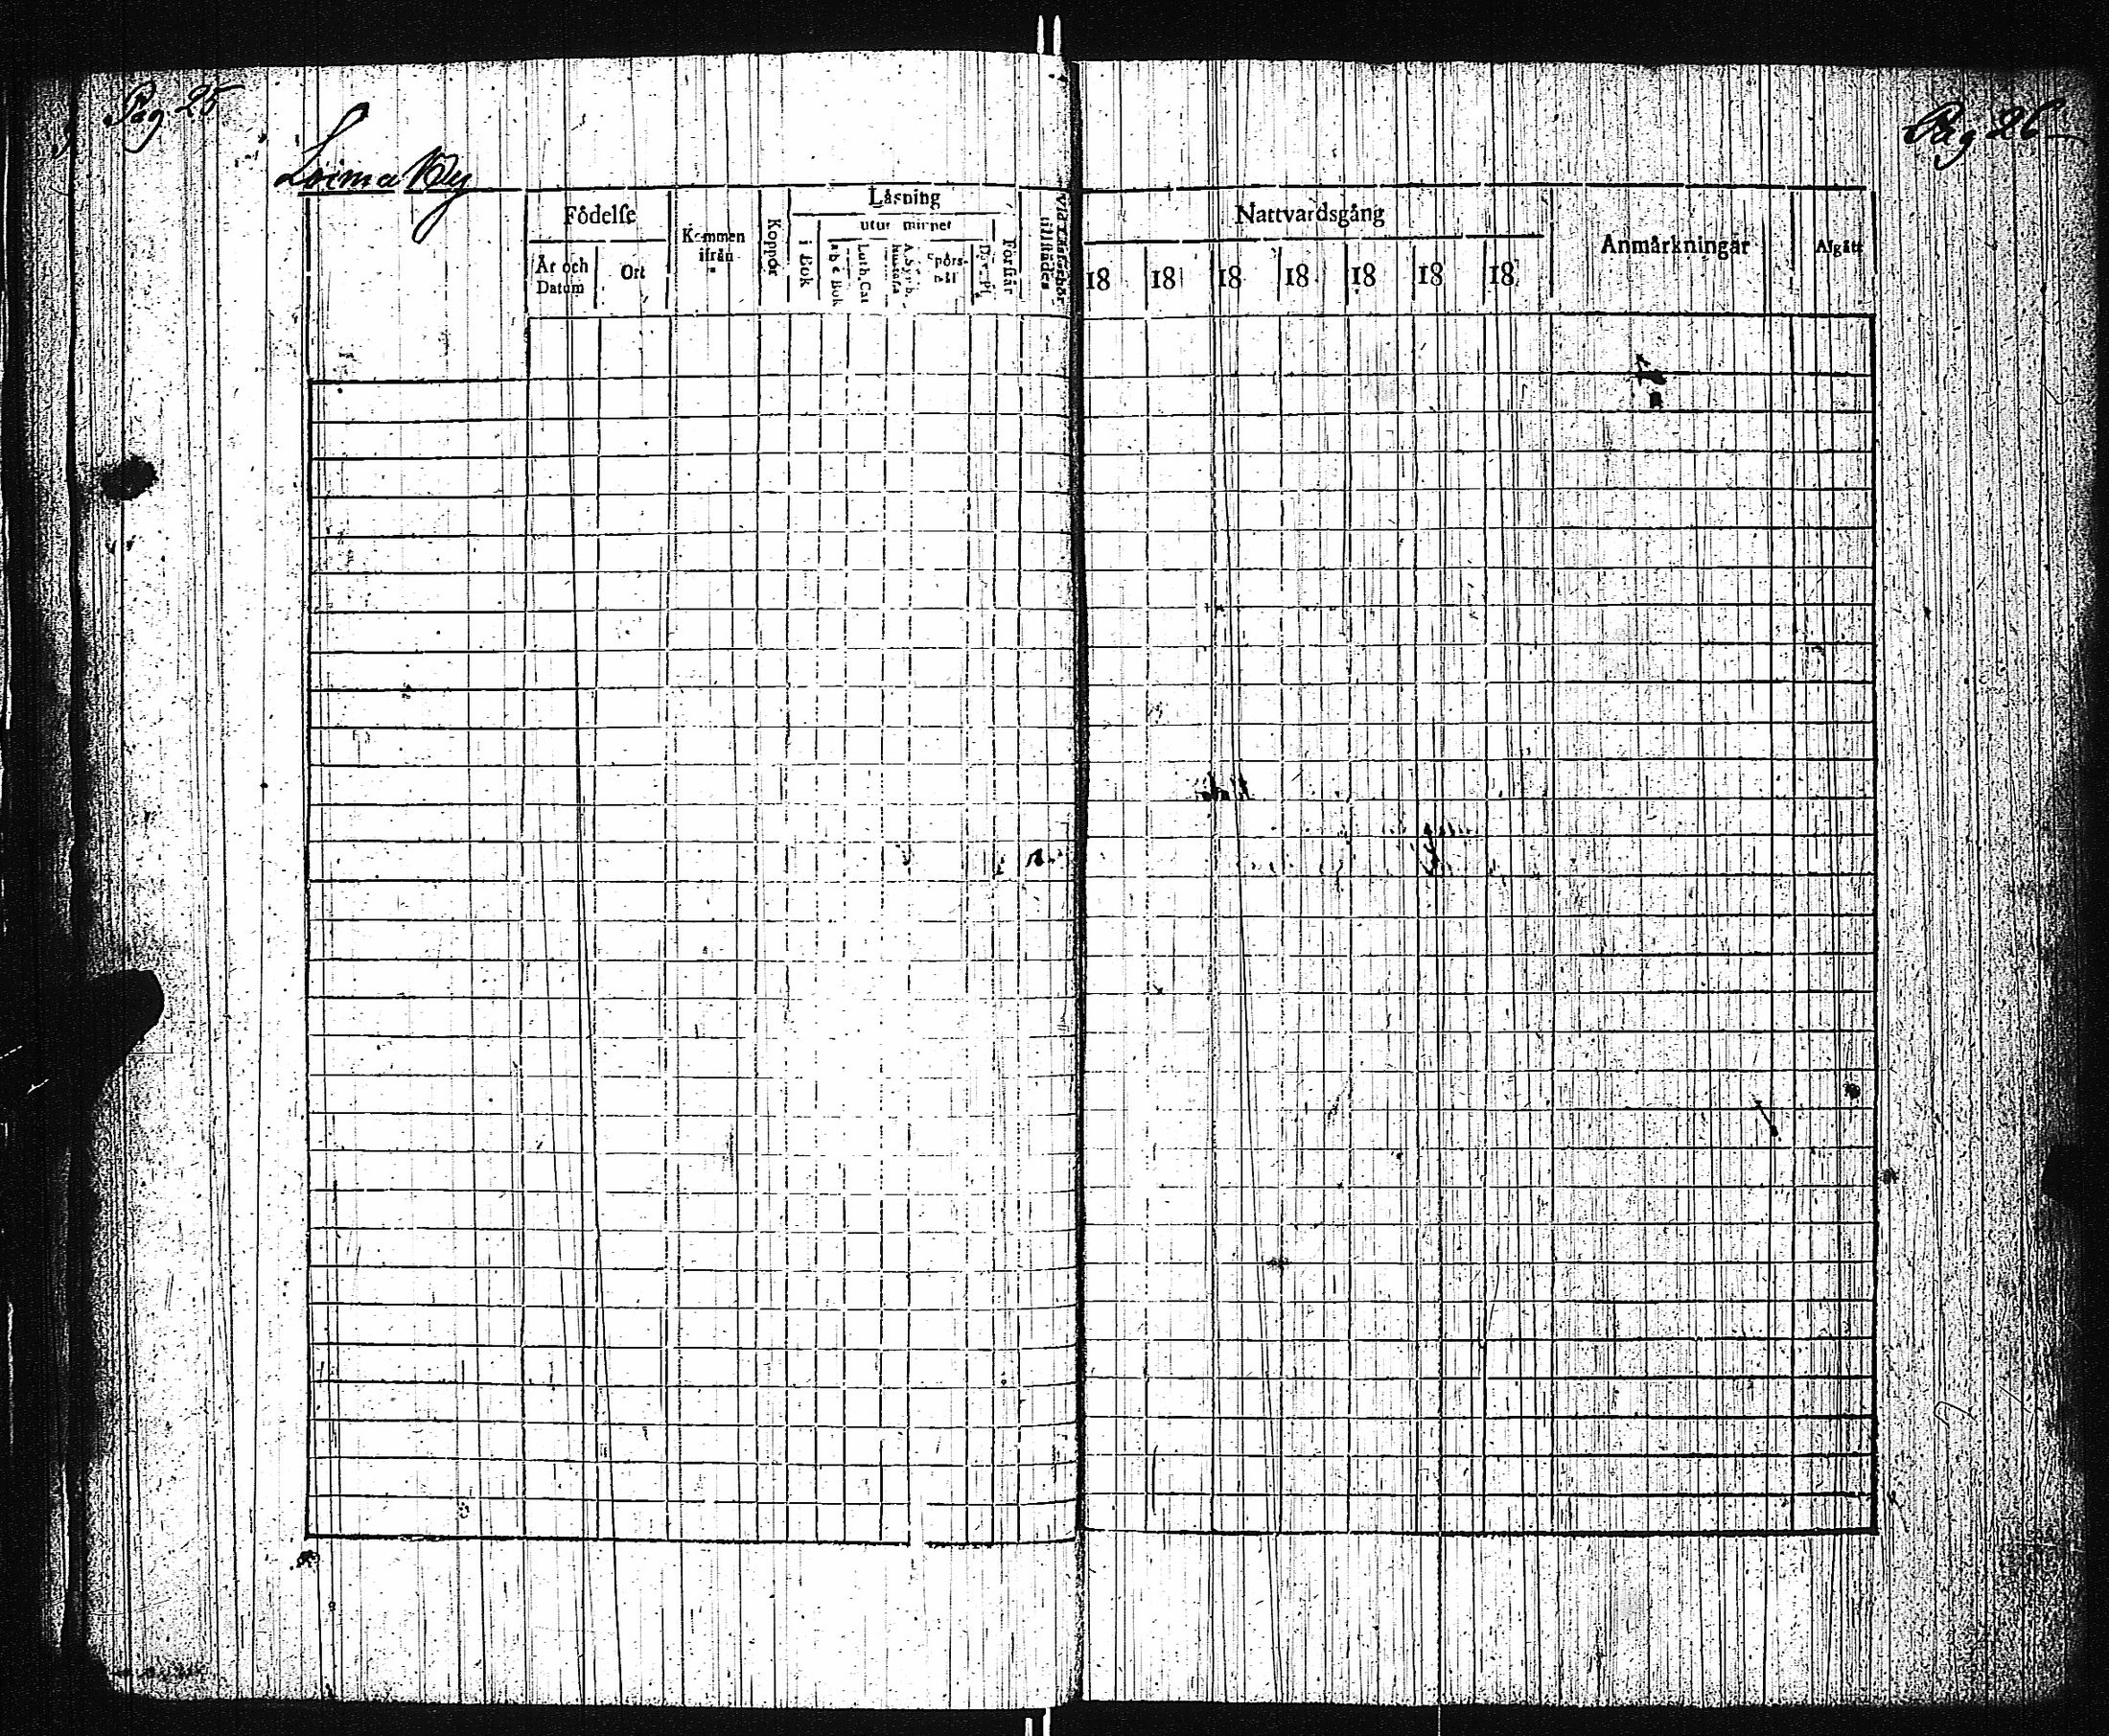 Pag 25
Pag 26
Loima By
Födelse
Kommen ifrån
Koppor
Läsning
Nattvardsgång
Anmärkningar
Afgått
År och Datum
Ort
i Bok
utur minnet
a b c Bok
Luth. Cat
Spörsmål
Förstår
18 18 18 18 18 18 18